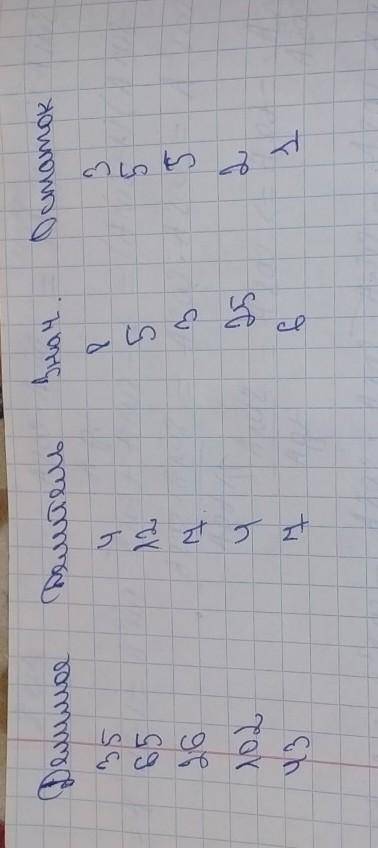 Делимое Делитель Знач. Остаток
35 4 8 3
65 12 5 5
26 7 3 5
102 4 25 2
43 7 6 1